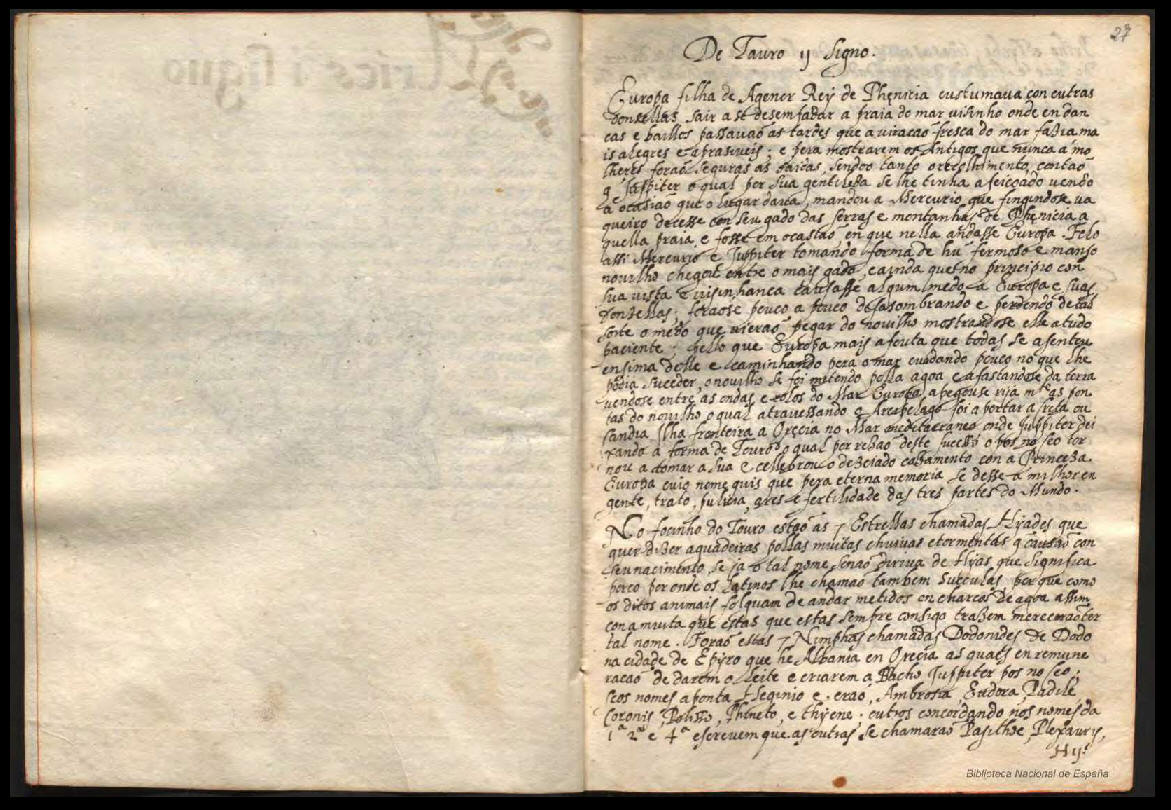 27
De Tauro ij Signo.
Europa filha de Agenor Rey de Phenicia custumaua con outras
donsellas sair a se desemfadar a praia do mar visinho onde en dan
cas e baillos passauaõ as tardes que a viracaõ fresca do mar fazia ma
is alegres e aprasiueis; e pera mostrarem os Antigos que nunca a mo
lheres foraõ seguras as saidas, sendo tanto o recolhimento, contaõ
q Juppiter o qual por sua gentileza se lhe tinha afeicoado vendo
a ocasiaõ que o lugar daua, mandou a Mercurio que fingindose va
queiro decesse con seu gado das serras e montanhas de Phenicia a
quella praia, e fosse em ocasiaõ en que nella andasse Europa. Felo
assi Mercurio e Juppiter tomando forma de hũ fermoso e manso
nouilho chegou entre o mais gado, e ainda que no principio con
sua vista e visinhanca causasse algum medo a Europa e suas
donzellas; foraose pouco a pouco desasombrando e perdendo de tal
sorte o medo que vieraõ pegar do nouilho mostrandose elle a tudo
paciente; pello que Europa mais afouta que todas se asentou
en sima delle e caminhando pera o mar cuidando pouco no que lhe
podia suceder, o nouilho se foi metendo polla agoa e afastandose da terra
vendose entre as ondas e rolos do Mar Europa, apegouse rija mte as pon
tas do nouilho o qual atrauessando o Arcipelago foi aportar a Creta ou
Candia Ilha fronteira a Grecia no Mar mediterraneo onde Juppiter dei
xando a forma de Touro, o qual por rezaõ deste sucesso o pos no seo tor
nou a tomar a sua e cellebrou o dezeiado casamento con a Princeza
Europa cuio nome quis que pera eterna memoria se desse a milhor en
gente, trato, pulicia, ares e fertilidade das tres partes do Mundo.
No focinho do Touro estaõ as 7 Estrellas chamadas Hyades que
quer dizer aguadeiras pollas muitas chuiuas e tormentas q causaõ con
seu nacimento, se ja o tal nome senaõ diriua de Hyas que significa
porco por onde os Latinos lhe chamaõ tambem Suculas, porque como
os ditos animais folguam de andar metidos en charcos de agoa assim
con a muita que estas que estas sempre consigo trazem mereceraõ ter
tal nome. Foraõ estas 7 Nimphas chamadas Dodonides de Dodo
na cidade de Epyro que he Albania en Grecia as quaes en remune
racaõ de darem o leite e criarem a Bacho Juppiter pos no seo;
seos nomes aponta Heginio e eraõ, Ambrosia Eudora, Padile
Coronis Polisso, Phineto, e thyene. outros concordando nos nomes da
1ª 2ª e 4ª escreuem que as outras se chamaraõ Pasithoe, Plexauris,
Hy:
Biblioteca Nacional de España